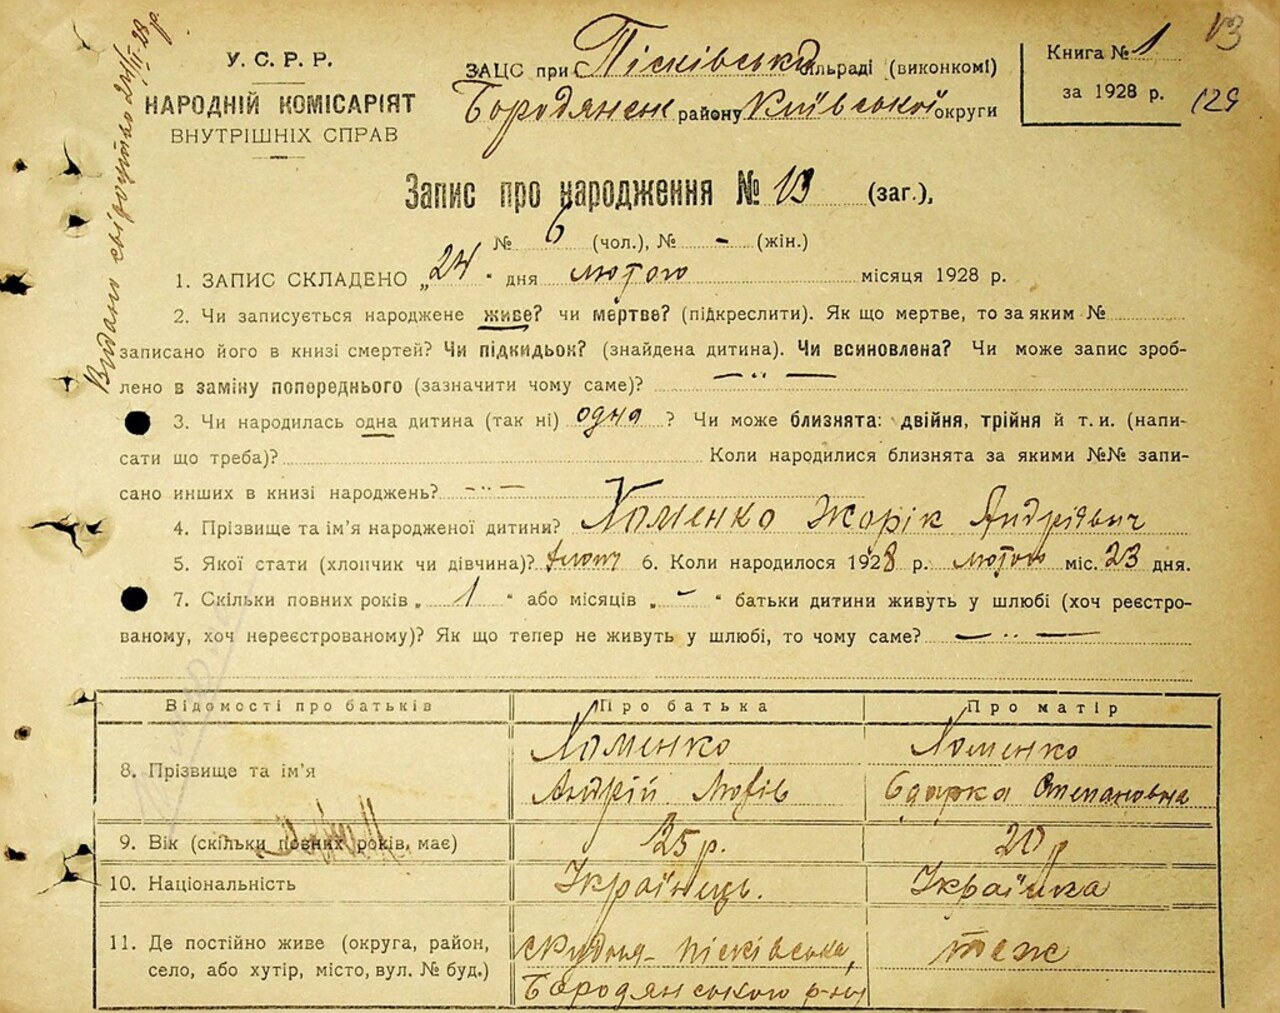 13
129
Видано свідоцтво 24/II-28 р.
У. С. Р. Р.
НАРОДНІЙ КОМІСАРІЯТ
ВНУТРІШНІХ СПРАВ
ЗАЦС при Пісківські сільраді (виконкомі)
Бородянськ району Київської округи
Книга № 1
за 1928 р.
Запис про народження № 13 (заг.),
№ 6 (чол.), № - (жін.)
1. ЗАПИС СКЛАДЕНО „24" дня лютого місяця 1928 р.
2. Чи записується народжене живе? чи мертве? (підкреслити). Як що мертве, то за яким №
записано його в книзі смертей? Чи підкидьок? (знайдена дитина). Чи всиновлена? Чи може запис зроб-
лено в заміну попереднього (зазначити чому саме)? — ·· —
3. Чи народилась одна дитина (так ні) одна ? Чи може близнята: двійня, трійня й т. и. (напи-
сати що треба)? Коли народилися близнята за якими №№ запи-
сано инших в книзі народжень? — ·· —
4. Прізвище та ім'я народженої дитини? Хоменко Жорік Андрієвич
5. Якої стати (хлопчик чи дівчина)? хлопч 6. Коли народилося 1928 р. лютого міс. 23 дня.
7. Скільки повних років „ 1 " або місяців „ - " батьки дитини живуть у шлюбі (хоч реєстро-
ваному, хоч нереєстрованому)? Як що тепер не живуть у шлюбі, то чому саме? — ·· —
Відомості про батьків Про батька Про матір
8. Прізвище та ім'я Хоменко Андрій Хоменко Степановна
9. Вік (скільки повних років, має) 25 р. 20 р
10. Національність Українець. Українка
11. Де постійно живе (округа, район,
село, або хутір, місто, вул. № буд.) Пісківська, Бородянського р-ну теж